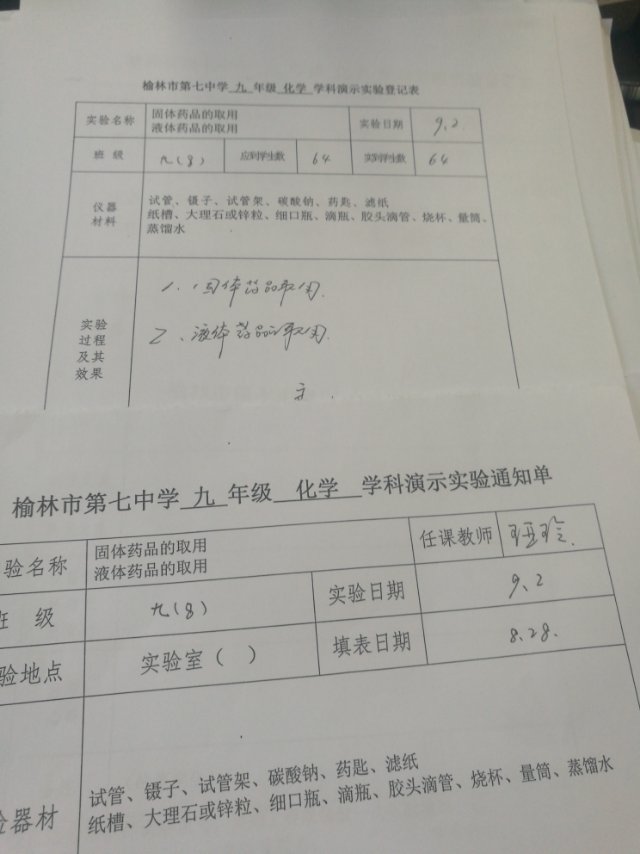 榆林市第七中学 九 年级 化学 学科演示实验登记表
实验名称 固体药品的取用 实验日期 9.2
液体药品的取用
班 级 九(8) 应到学生数 64 实到学生数 64
仪器 试管、镊子、试管架、碳酸钠、药匙、滤纸
材料 纸槽、大理石或锌粒、细口瓶、滴瓶、胶头滴管、烧杯、量筒、
蒸馏水
1、固体药品取用.
实验
过程 2、液体药品的取用.
及其
效果
榆林市第七中学 九 年级 化学 学科演示实验通知单
验名称 固体药品的取用 任课教师
液体药品的取用
级 九(8) 实验日期 9.2
验地点 实验室( ) 填表日期 8.28.
试管、镊子、试管架、碳酸钠、药匙、滤纸
器材 纸槽、大理石或锌粒、细口瓶、滴瓶、胶头滴管、烧杯、量筒、蒸馏水